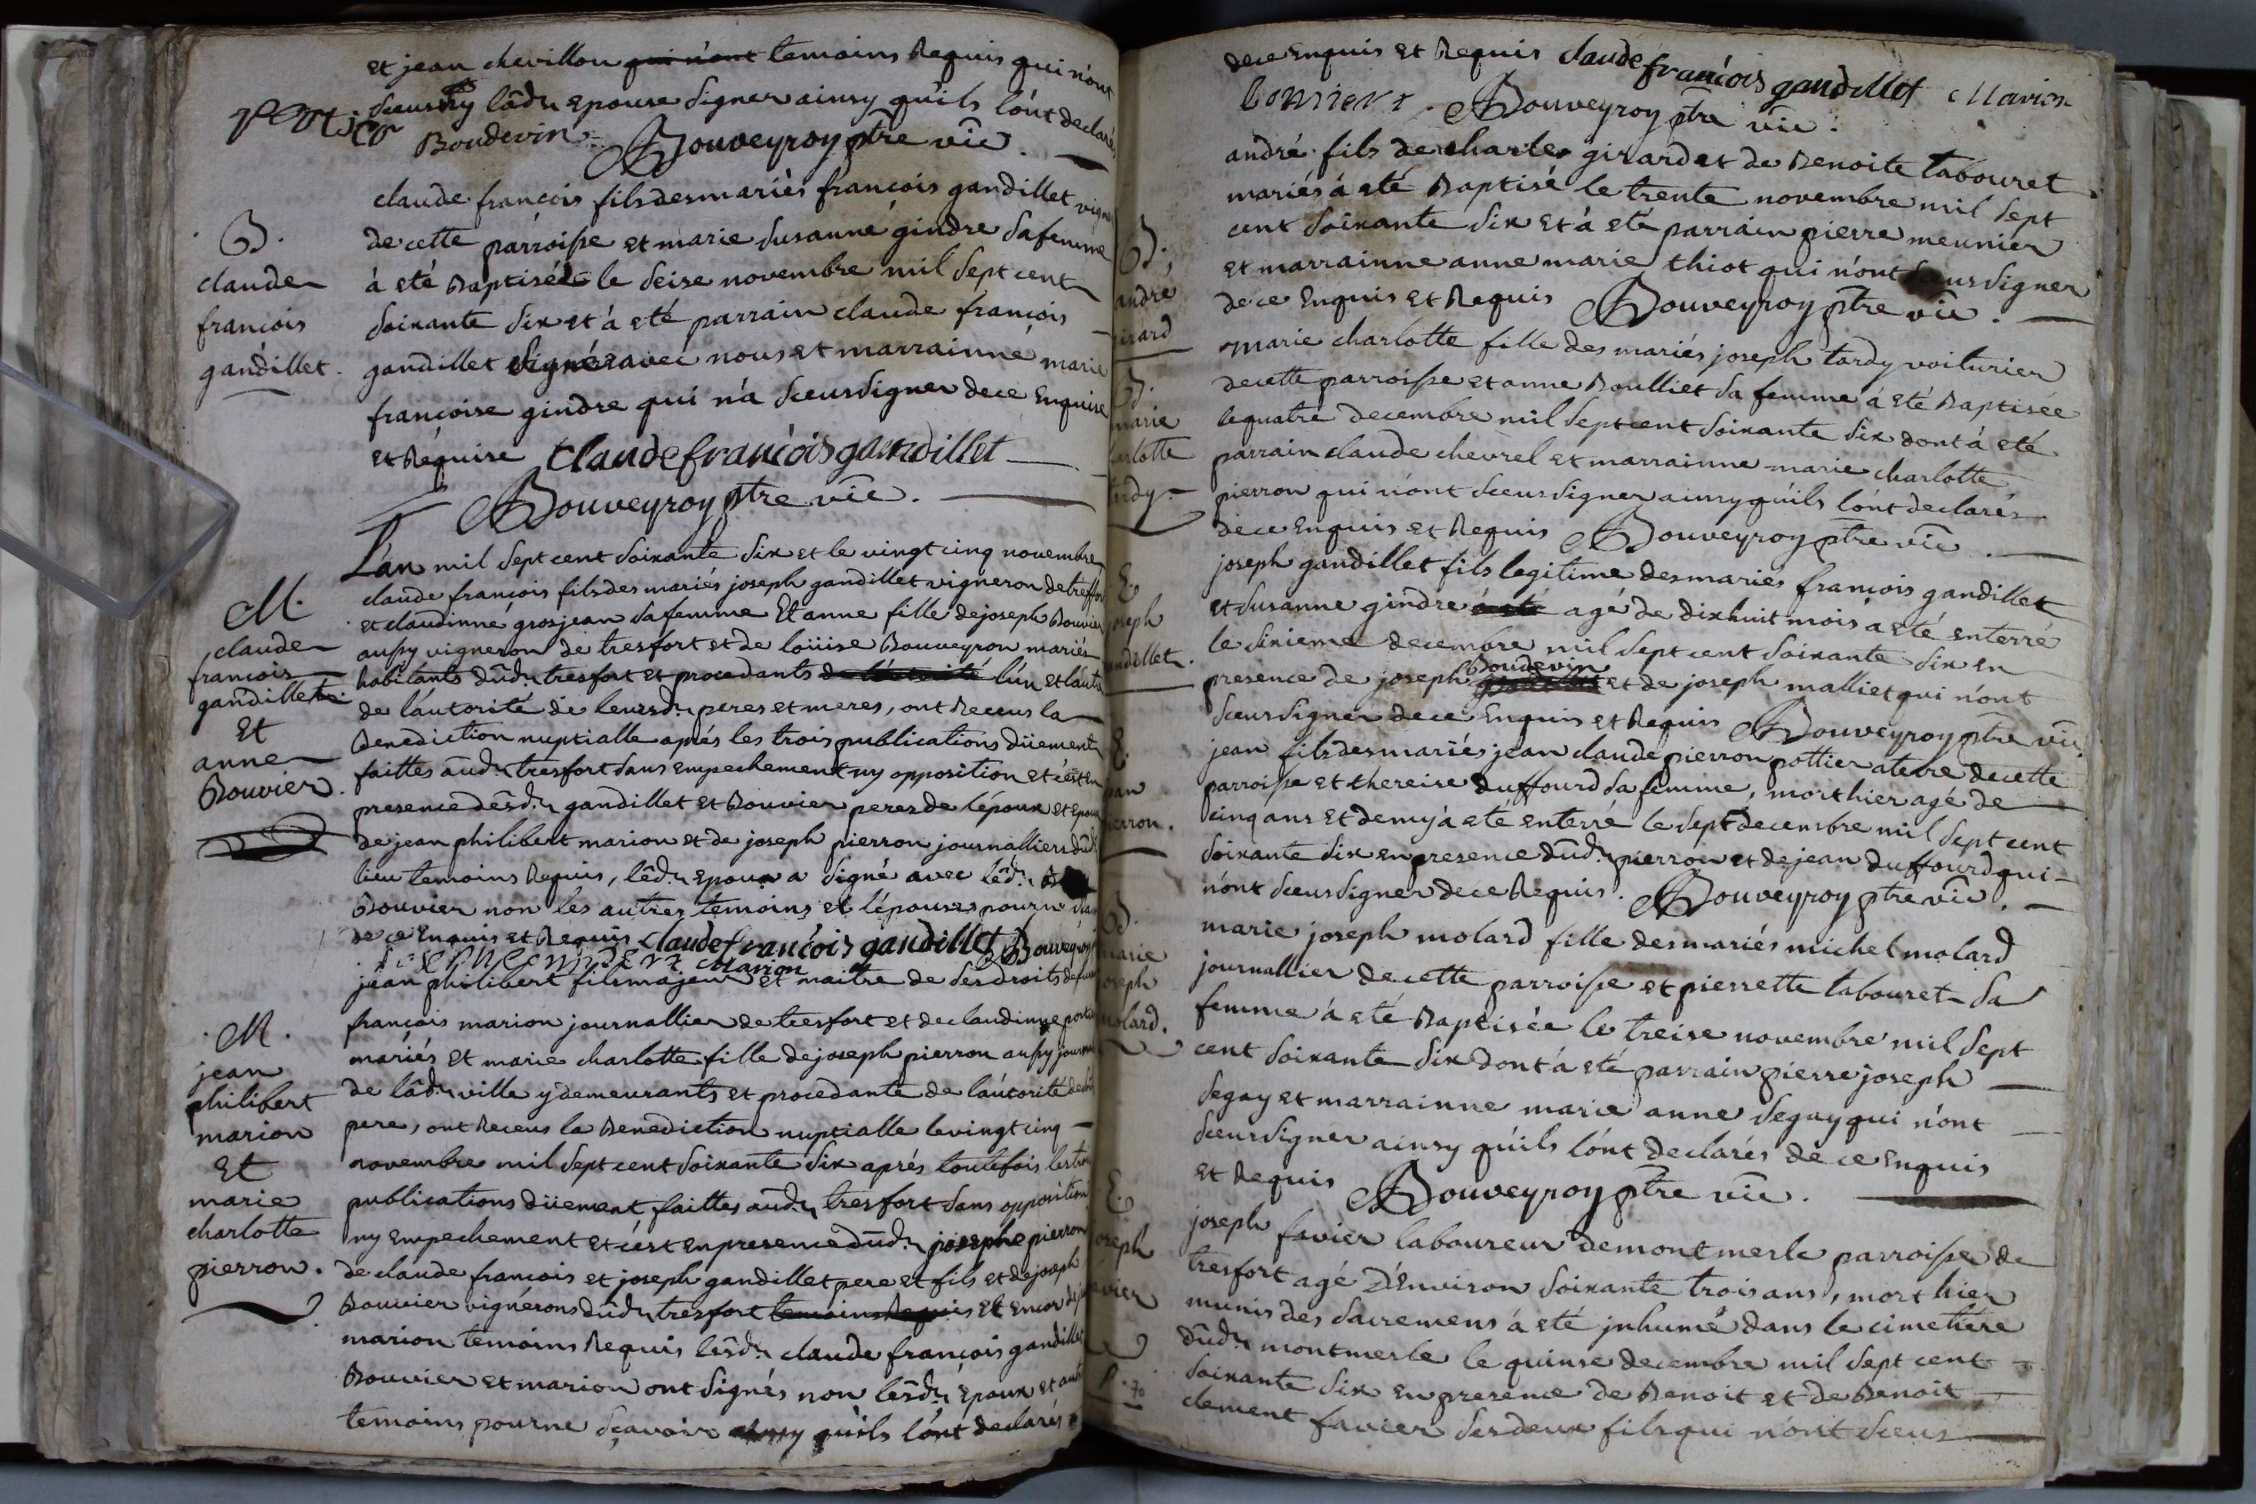 et jean chevillon qui n'ont temoins Requis qui n'ont
sceus ny lad: Epouse signer ainsy qu'ils l'ont declarés
Boudevin Bouveyroy ptre vic.
B.
claude
françois
gandillet.
claude françois fils des mariés françois gandillet
de cette parroisse et marie susanne gindre sa femme
à eté Baptisé le seise novembre mil sept cent
soixante six et à eté parrain claude françois
gandillet signé avec nous et marrainne marie
françoise gindre qui n'a sceus signer de ce Enquise
et Requise claude francois gandillet
Bouveyroy ptre vic.
M.
claude
francois
gandillet
Et
anne
Bouvier.
L'an mil sept cent soixante six et le vingt cinq novembre
claude françois fils des mariés joseph gandillet vigneron de treffort
et claudinne grosjean sa femme Et anne fille de joseph Bouvier
aussy vigneron de tresfort et de loüise Bouveyron mariés
habitants dud: tresfort et procedants de l'autorité l'ún et l'autre
de l'autorité de leursd: peres et meres, ont Receus la
Benediction nuptialle aprés les trois publications düement
faittes aud: tresfort sans empechement ny opposition et c'est en
presence desd: gandillet et Bouvier peres de l'époux et Epouse
de jean philibert marion et de joseph pierron journalliers dud:
lieu temoins Requis, led: Epoux a signé avec led:
Bouvier non les autres temoins et l'épouse pour ne
de ce Enquis et Requis claude francois gandillet Bouveyroy
Marion
M.
jean
philibert
marion
Et
marie
charlotte
pierron.
jean philibert fils majeur et maitre de ses droits de
françois marion journallier de tresfort et de claudinne
mariés et marie charlotte fille de joseph pierron aussy
de lad: ville y demeurants et procedante de l'autorité de
pere, ont Receus la Benediction nuptialle le vingt cinq
novembre mil sept cent soixante six aprés toutefois les trois
publications düement faittes aud: tresfort sans opposition
ny empechement et c'est en presence dud: joseph pierron
de claude francois et joseph gandillet pere et fils et de joseph
Bouvier vignérons dud: tresfort temoins Requis et encor
marion temoins Requis lesd: claude françois gandillet
Bouvier et marion ont signés non lesd: Epoux et autres
temoins pour ne sçavoir ainsy qu'ils l'ont declarés
de ce Enquis et Requis claude francois gandillet Marion
Bouvier. Bouveyroy ptre vic.
B.
andré
girard
andré fils de charles girard et de Benoite tabouret
mariés à eté Baptisé le trente novembre mil sept
cent soixante six et à eté parrain pierre meunier
et marrainne anne marie thiot qui n'ont sceus signer
de ce Enquis et Requis Bouveyroy ptre vic.
B.
marie
charlotte
tardy.
marie charlotte fille des mariés joseph tardy voiturier
de cette parroisse et anne Boulliet sa femme à eté Baptisée
le quatre decembre mil sept cent soixante six dont à eté
parrain claude chevrel et marrainne marie charlotte
pierron qui n'ont sceus signer ainsy qu'ils l'ont declarés
de ce Enquis et Requis Bouveyroy ptre vic.
E.
joseph
gandillet.
joseph gandillet fils legitime des mariés françois gandillet
et susanne gindre à eté agé de dixhuit mois à eté enterré
le sixieme decembre mil sept cent soixante six en
presence de joseph gandillet Boudevin et de joseph malliet qui n'ont
sceus signer de ce Enquis et Requis Bouveyroy ptre vic.
E.
jean
pierron.
jean fils des mariés jean claude pierron pottier aterre de cette
parroisse et thereise duffourd sa femme, mort hier agé de
cinq ans et demy à eté enterré le sept decembre mil sept cent
soixante six en presence dud: pierron et de jean duffourd qui
n'ont sceus signer de ce Requis. Bouveyroy ptre vic.
B.
marie
joseph
molard.
marie joseph molard fille des mariés michel molard
journallier de cette parroisse et pierrette tabouret sa
femme à eté Baptisée le treise novembre mil sept
cent soixante six dont à eté parrain pierre joseph
seguy et marrainne marie anne seguy qui n'ont
sceus signer ainsy qu'ils l'ont declarés de ce Enquis
et Requis Bouveyroy ptre vic.
E.
joseph
favier
joseph favier laboureur de montmerle parroisse de
tresfort agé d'Environ soixante trois ans, mort hier
munis des sacremens à eté jnhumé dans le cimetiere
dud: montmerle le quinse decembre mil sept cent
soixante six en presence de Benoit et de Benoit
clement favier ses deux fils qui n'ont sceus